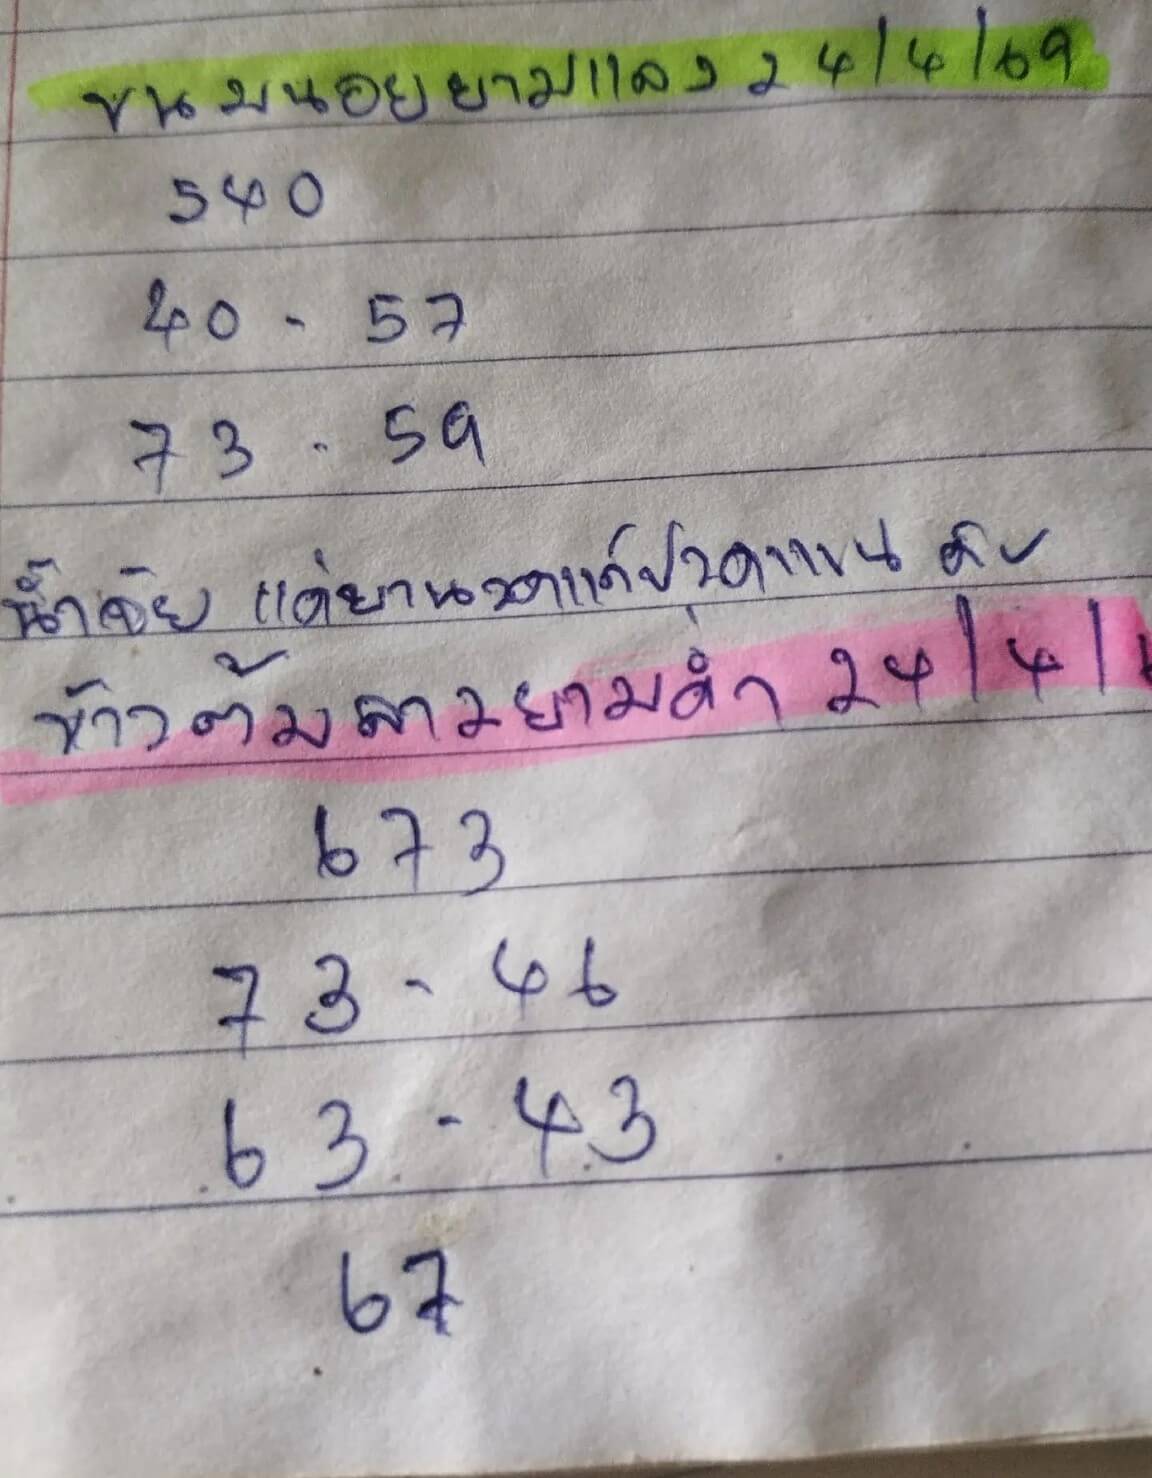 ขนมนอยยามแลง 24/4/69
540
40 - 57
73 - 59
น้ำจัย แค่ยานวดแก้ปวดแขน
ข้าวต้มลาวยามค่ำ 24/4/
673
73 - 46
63 - 43
67